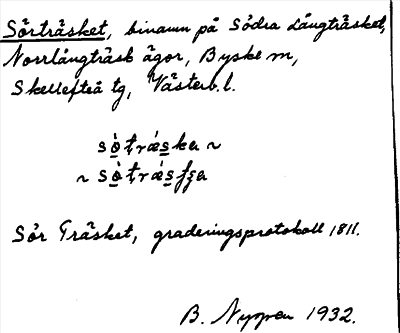 Sörträsket, binamn på Södra Långträsket,
Norrlångträsk ägor, Byske sn,
Skellefteå tg, Västerb. l.
Sör Träsket, graderingsprotokoll 1811.
B. Nygren 1932.